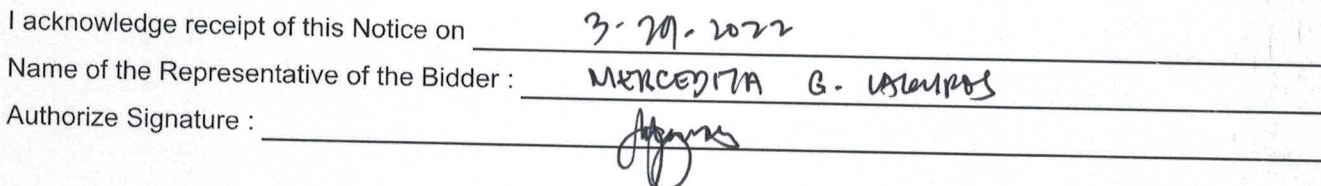 I acknowledge receipt of this Notice on 3-29-2022
Name of the Representative of the Bidder : MERCEDITA G.
Authorize Signature :